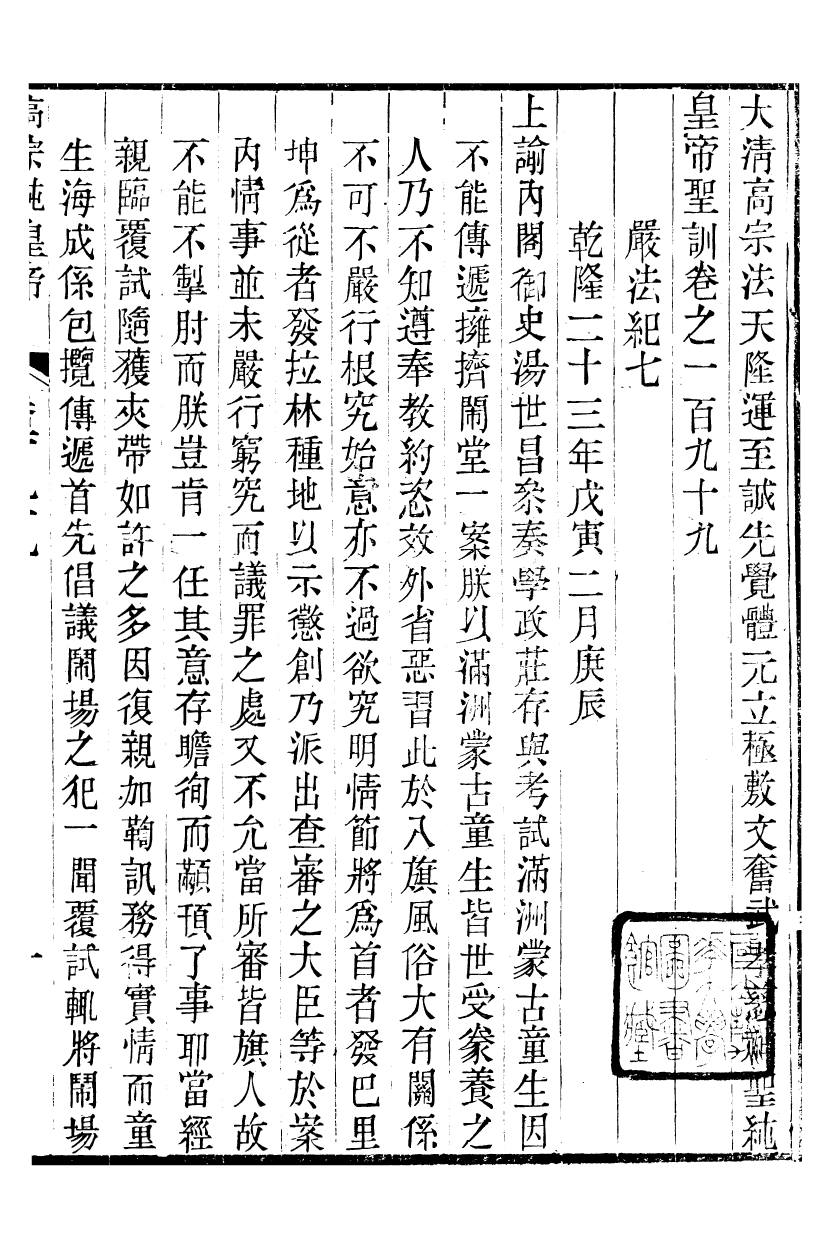 大清高宗法天隆運至誠先覺體元立極敷文奮武孝慈神聖純
皇帝聖訓卷之一百九十九
嚴法紀七
乾隆二十三年戊寅二月庚辰
上諭內閣御史湯世昌叅奏學政莊存與考試滿洲蒙古童生因
不能傳遞擁擠鬧堂一案朕以滿洲蒙古童生皆世受豢養之
人乃不知遵奉教約恣效外省惡習此於八旗風俗大有關係
不可不嚴行根究始意亦不過欲究明情節將爲首者發巴里
坤爲從者發拉林種地以示懲創乃派出查審之大臣等於案
內情事並未嚴行窮究而議罪之處又不允當所審皆旗人故
不能不掣肘而朕豈肯一任其意存瞻徇而顢頇了事耶當經
親臨覆試隨獲夾帶如許之多因復親加鞫訊務得實情而童
生海成係包攬傳遞首先倡議鬧場之犯一聞覆試輒將鬧場
高宗純皇帝
一
圖書
館藏